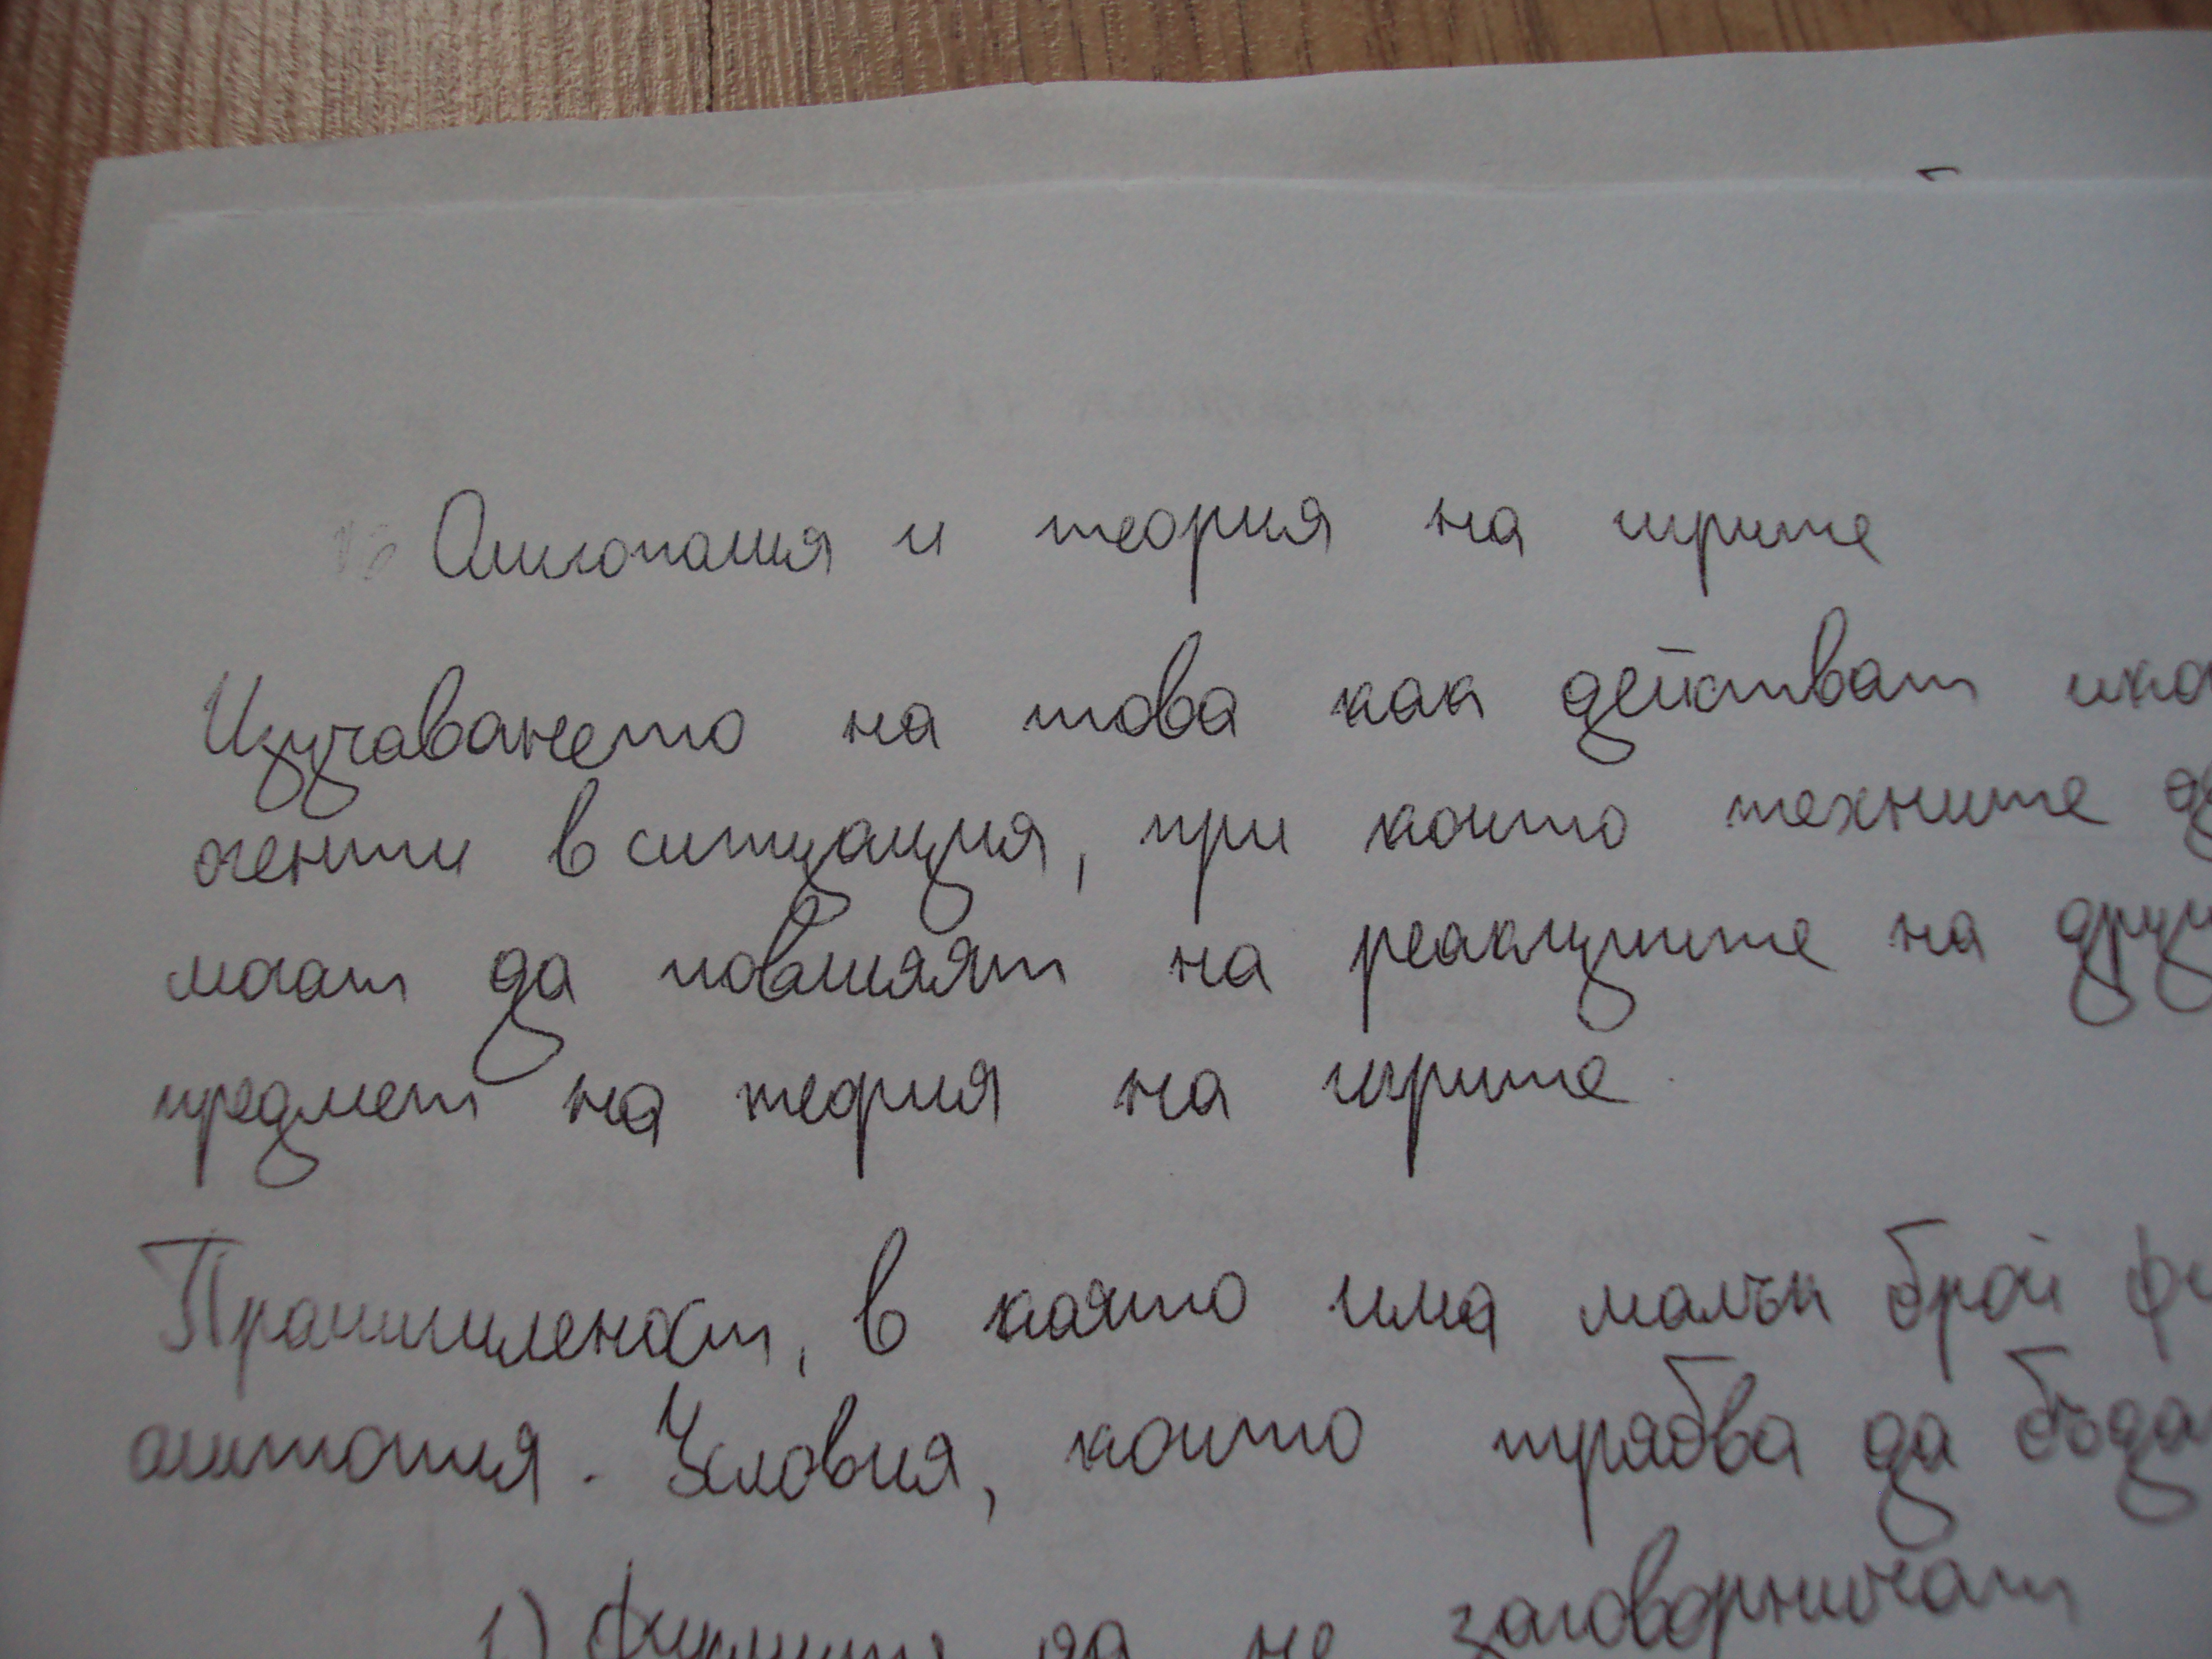 Олигополия и теория на игрите
Изучаването на това как действат
агенти в ситуация, при които техните
могат да повлияят на реакциите на
предмет на теория на игрите.
Промишленост, в която има малък брой
олигополия. Условия, които трябва да
1) Фирмите да не заговорничат